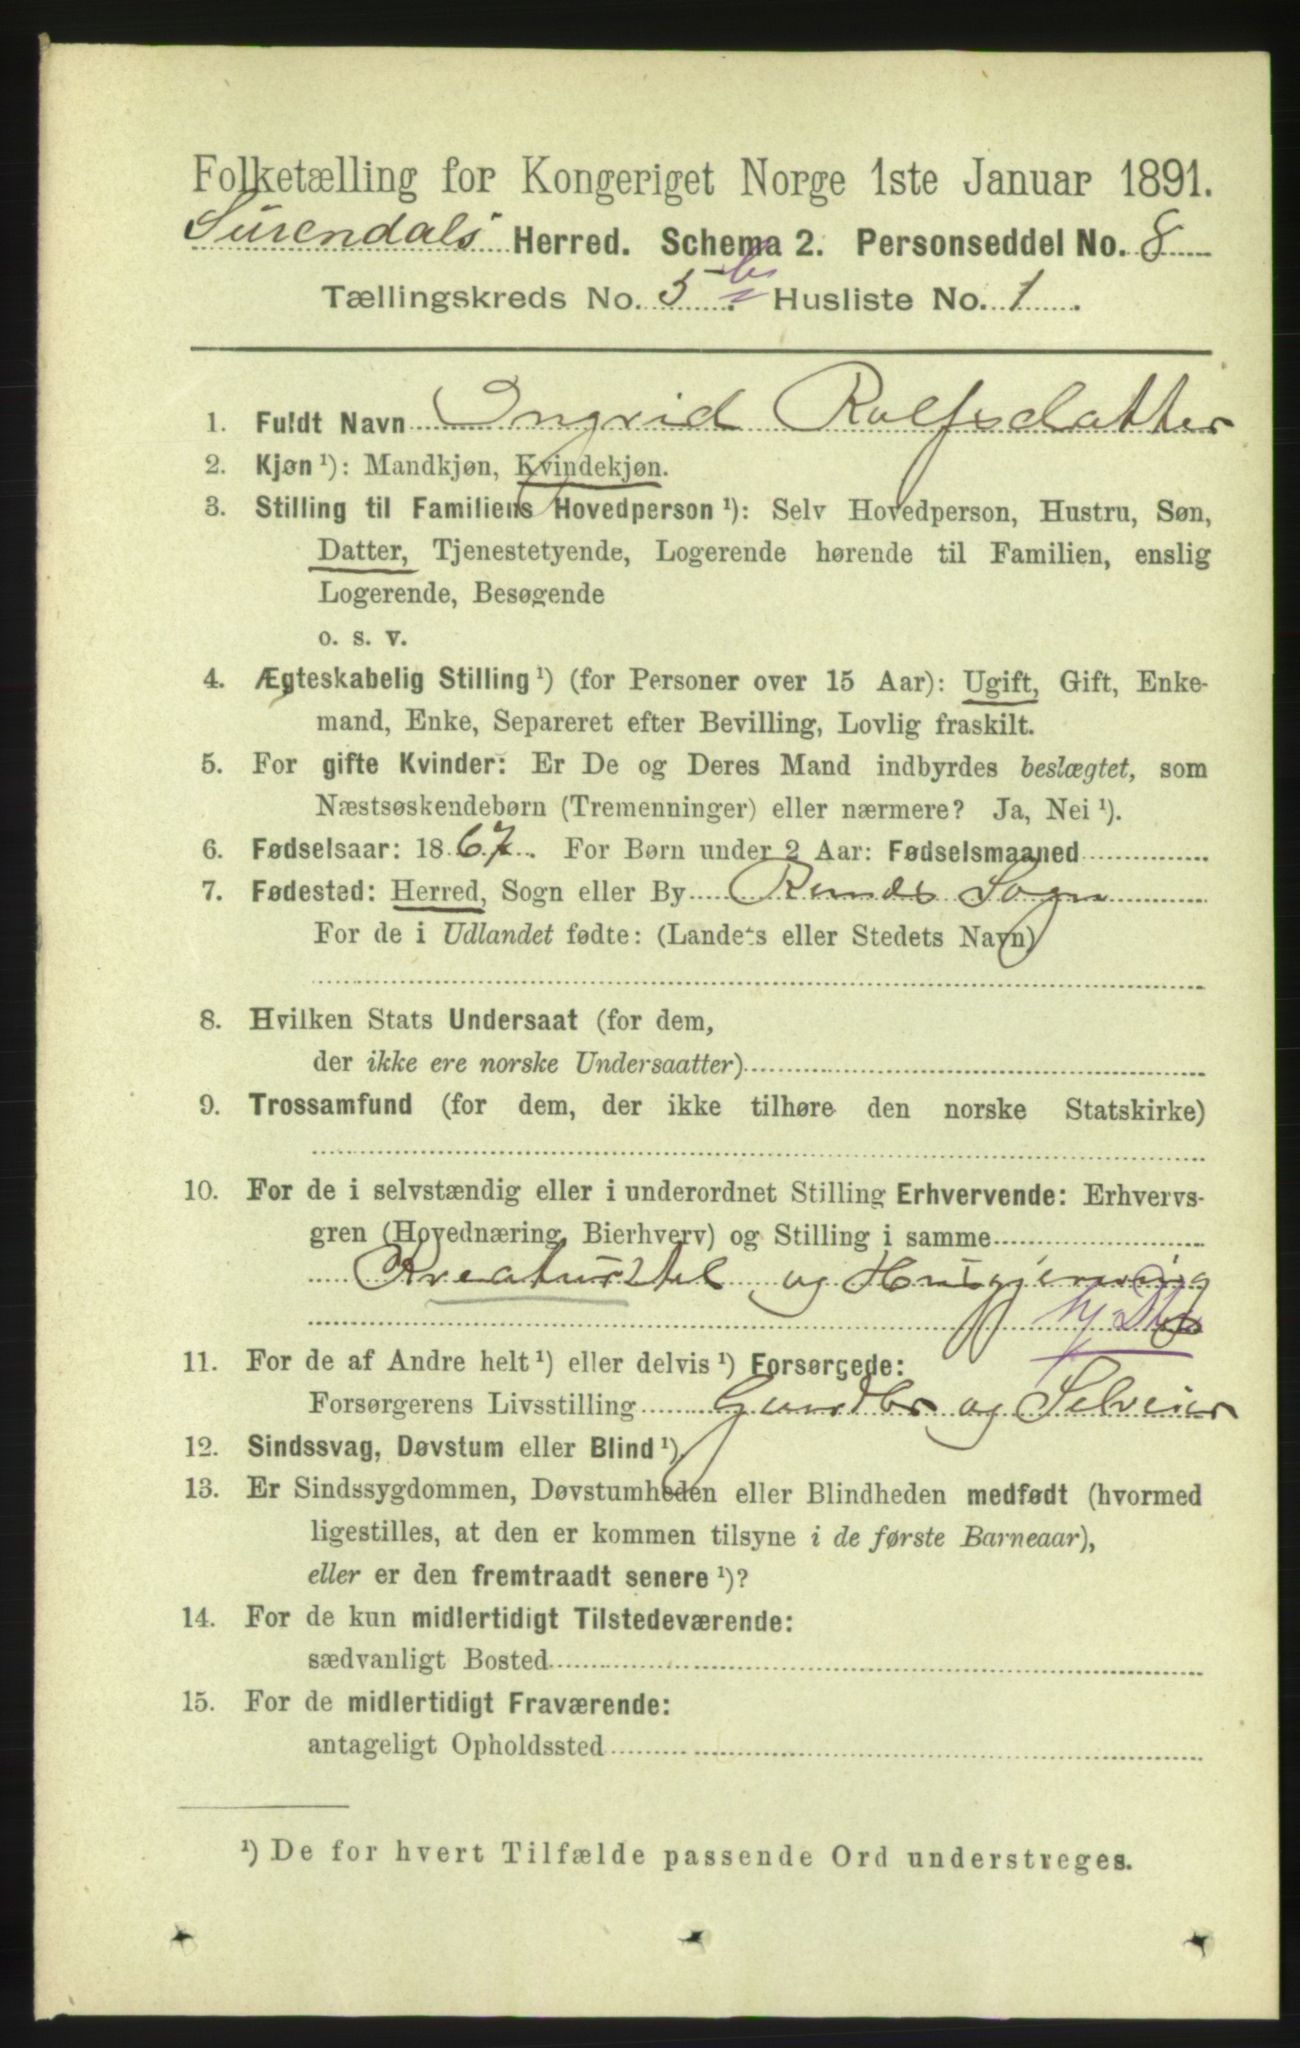 Folketælling for Kongeriget Norge 1ste Januar 1891.
Surendals Herred. Schema 2. Personseddel No. 8
Tællingskreds No. 5 b. Husliste No. 1.
1. Fuldt Navn Ingrid Rolfsdatter
2. Kjøn ¹): Mandkjøn, Kvindekjøn.
3. Stilling til Familiens Hovedperson ¹): Selv Hovedperson, Hustru, Søn,
Datter, Tjenestetyende, Logerende hørende til Familien, enslig
Logerende, Besøgende
o. s. v.
4. Ægteskabelig Stilling ¹) (for Personer over 15 Aar): Ugift, Gift, Enke-
mand, Enke, Separeret efter Bevilling, Lovlig fraskilt.
5. For gifte Kvinder: Er De og Deres Mand indbyrdes beslægtet, som
Næstsøskendebørn (Tremenninger) eller nærmere? Ja, Nei ¹).
6. Fødselsaar: 1867. For Børn under 2 Aar: Fødselsmaaned
7. Fødested: Herred, Sogn eller By Rindes Sogn
For de i Udlandet fødte: (Landets eller Stedets Navn)
8. Hvilken Stats Undersaat (for dem,
der ikke ere norske Undersaatter)
9. Trossamfund (for dem, der ikke tilhøre den norske Statskirke)
10. For de i selvstændig eller i underordnet Stilling Erhvervende: Erhvervs-
gren (Hovednæring, Bierhverv) og Stilling i samme
Kreaturstel og Husgjerning
11. For de af Andre helt ¹) eller delvis ¹) Forsørgede:
Forsørgerens Livsstilling Gaardbr og Selveier
12. Sindssvag, Døvstum eller Blind ¹)
13. Er Sindssygdommen, Døvstumheden eller Blindheden medfødt (hvormed
ligestilles, at den er kommen tilsyne i de første Barneaar),
eller er den fremtraadt senere ¹)?
14. For de kun midlertidigt Tilstedeværende:
sædvanligt Bosted
15. For de midlertidigt Fraværende:
antageligt Opholdssted
¹) De for hvert Tilfælde passende Ord understreges.